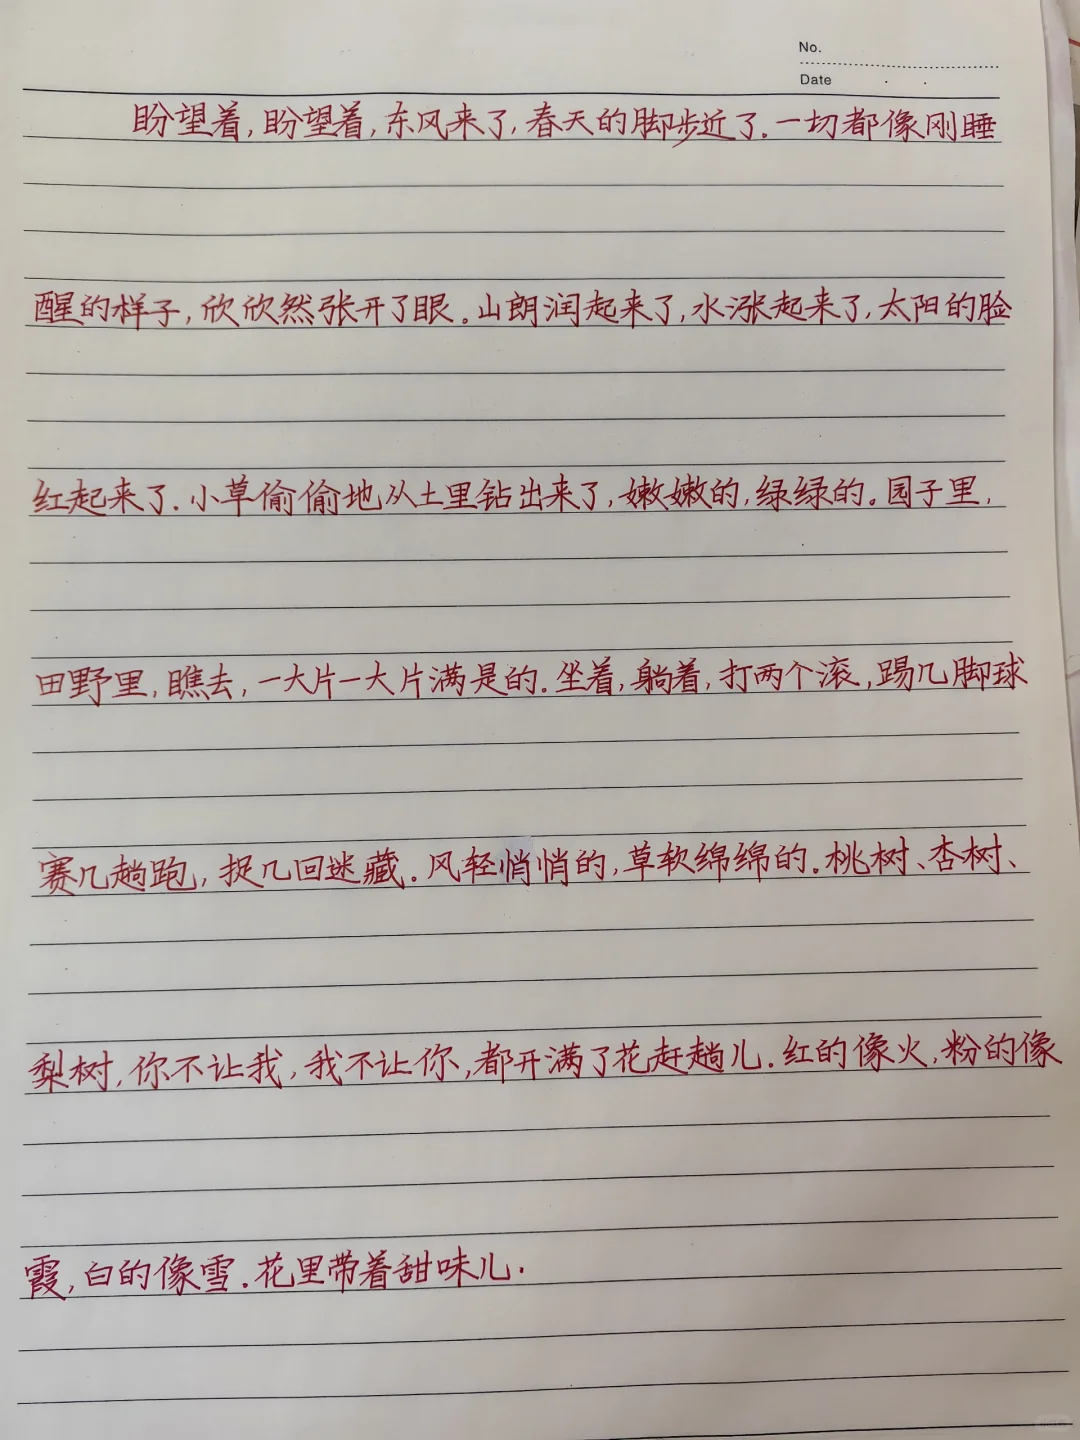 No.
Date
盼望着,盼望着,东风来了,春天的脚步近了.一切都像刚睡
醒的样子,欣欣然张开了眼。山朗润起来了,水涨起来了,太阳的脸
红起来了.小草偷偷地从土里钻出来了,嫩嫩的,绿绿的。园子里,
田野里,瞧去,一大片一大片满是的.坐着,躺着,打两个滚,踢几脚球
赛几趟跑,捉几回迷藏.风轻悄悄的,草软绵绵的.桃树、杏树、
梨树,你不让我,我不让你,都开满了花赶趟儿.红的像火,粉的像
霞,白的像雪.花里带着甜味儿.